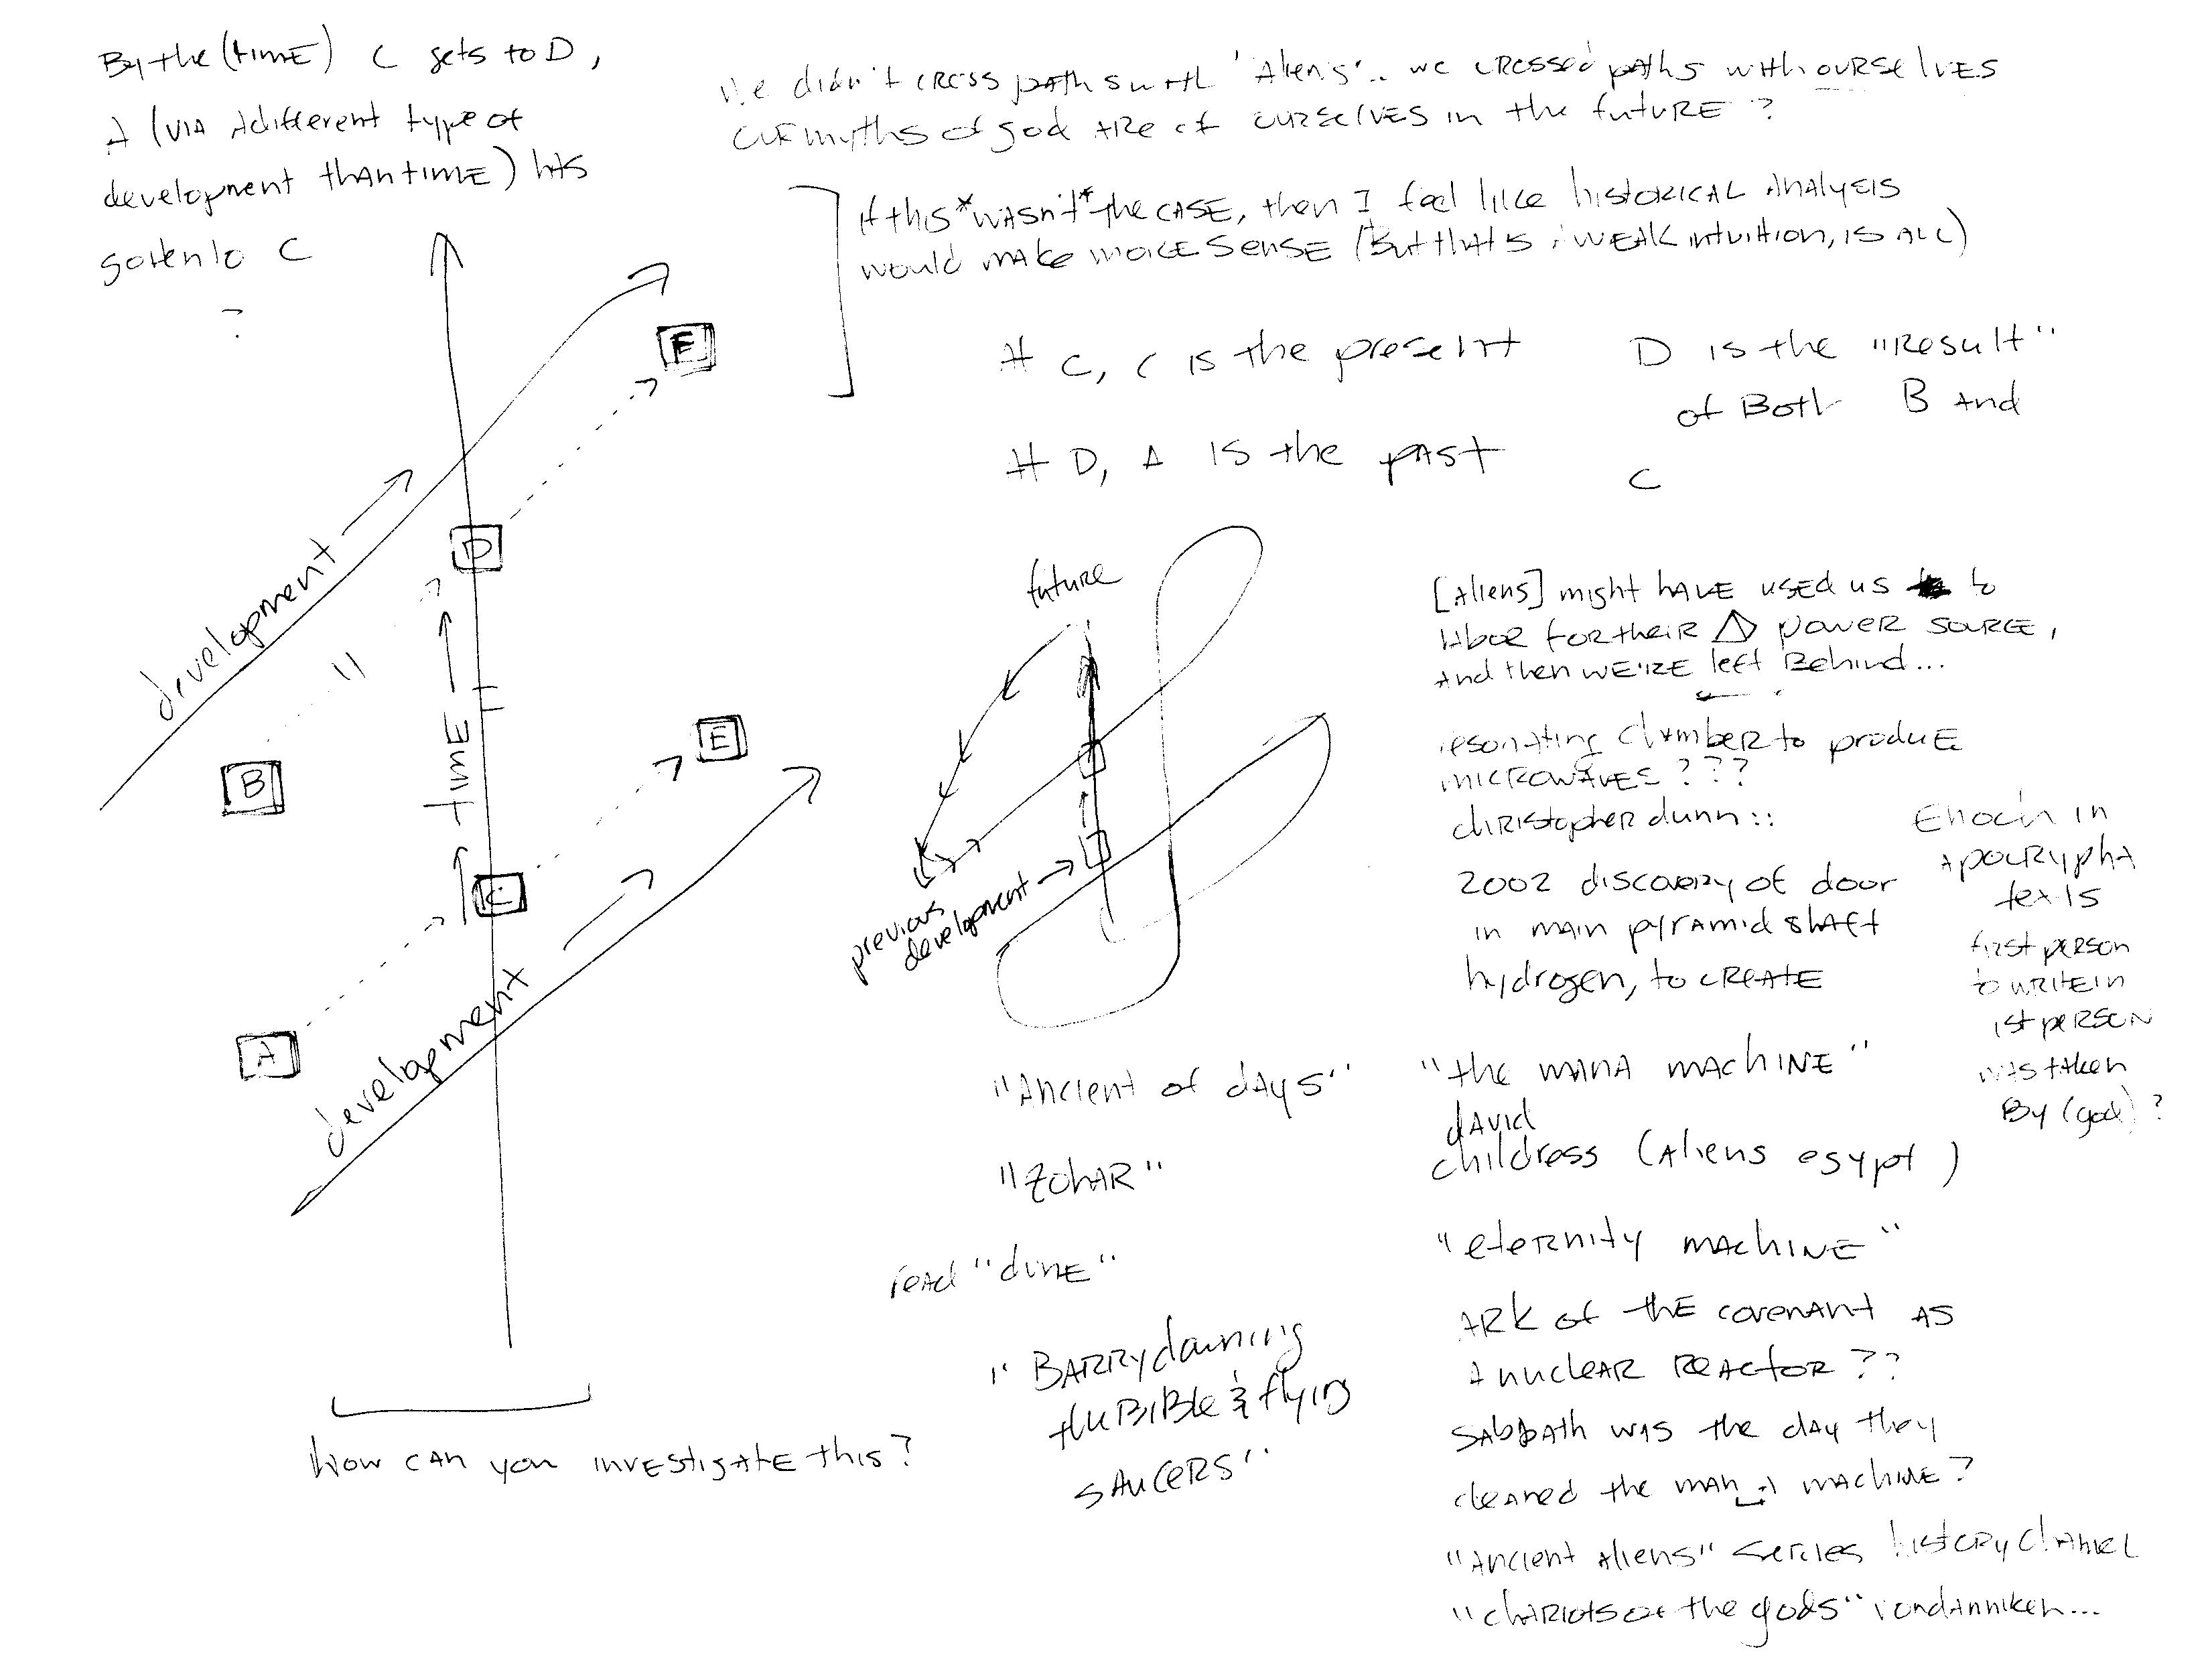 By the (time) C gets to D,
A (via a different type of
development than time) has
gotten to C
?
We didn't cross paths with 'Aliens'.. we crossed paths with ourselves
our myths of god are of ourselves in the future?
If this *wasn't* the case, then I feel like historical analysis
would make more sense (But that's a weak intuition, is all)
At C, C is the present
At D, A is the past
D is the "Result"
of Both B and
C
development
time
development
F
D
B
E
C
A
How can you investigate this?
future
previous
development
[Aliens] might have used us to
labor for their power source,
and then we're left Behind...
resonating chamber to produce
microwaves???
christopher dunn::
2002 discovery of door
in main pyramid shaft
hydrogen, to create
Enoch in
apocrypha
texts
first person
to write in
1st person
was taken
By (god)?
"Ancient of days"
"Zohar"
read "dune"
"Barry downing
the Bible & flying
saucers"
"the mana machine"
david
childress (Aliens egypt)
"eternity machine"
Ark of the covenant as
a nuclear reactor??
Sabbath was the day they
cleaned the mana machine?
"Ancient Aliens" series history channel
"chariots of the gods" vondanniken...